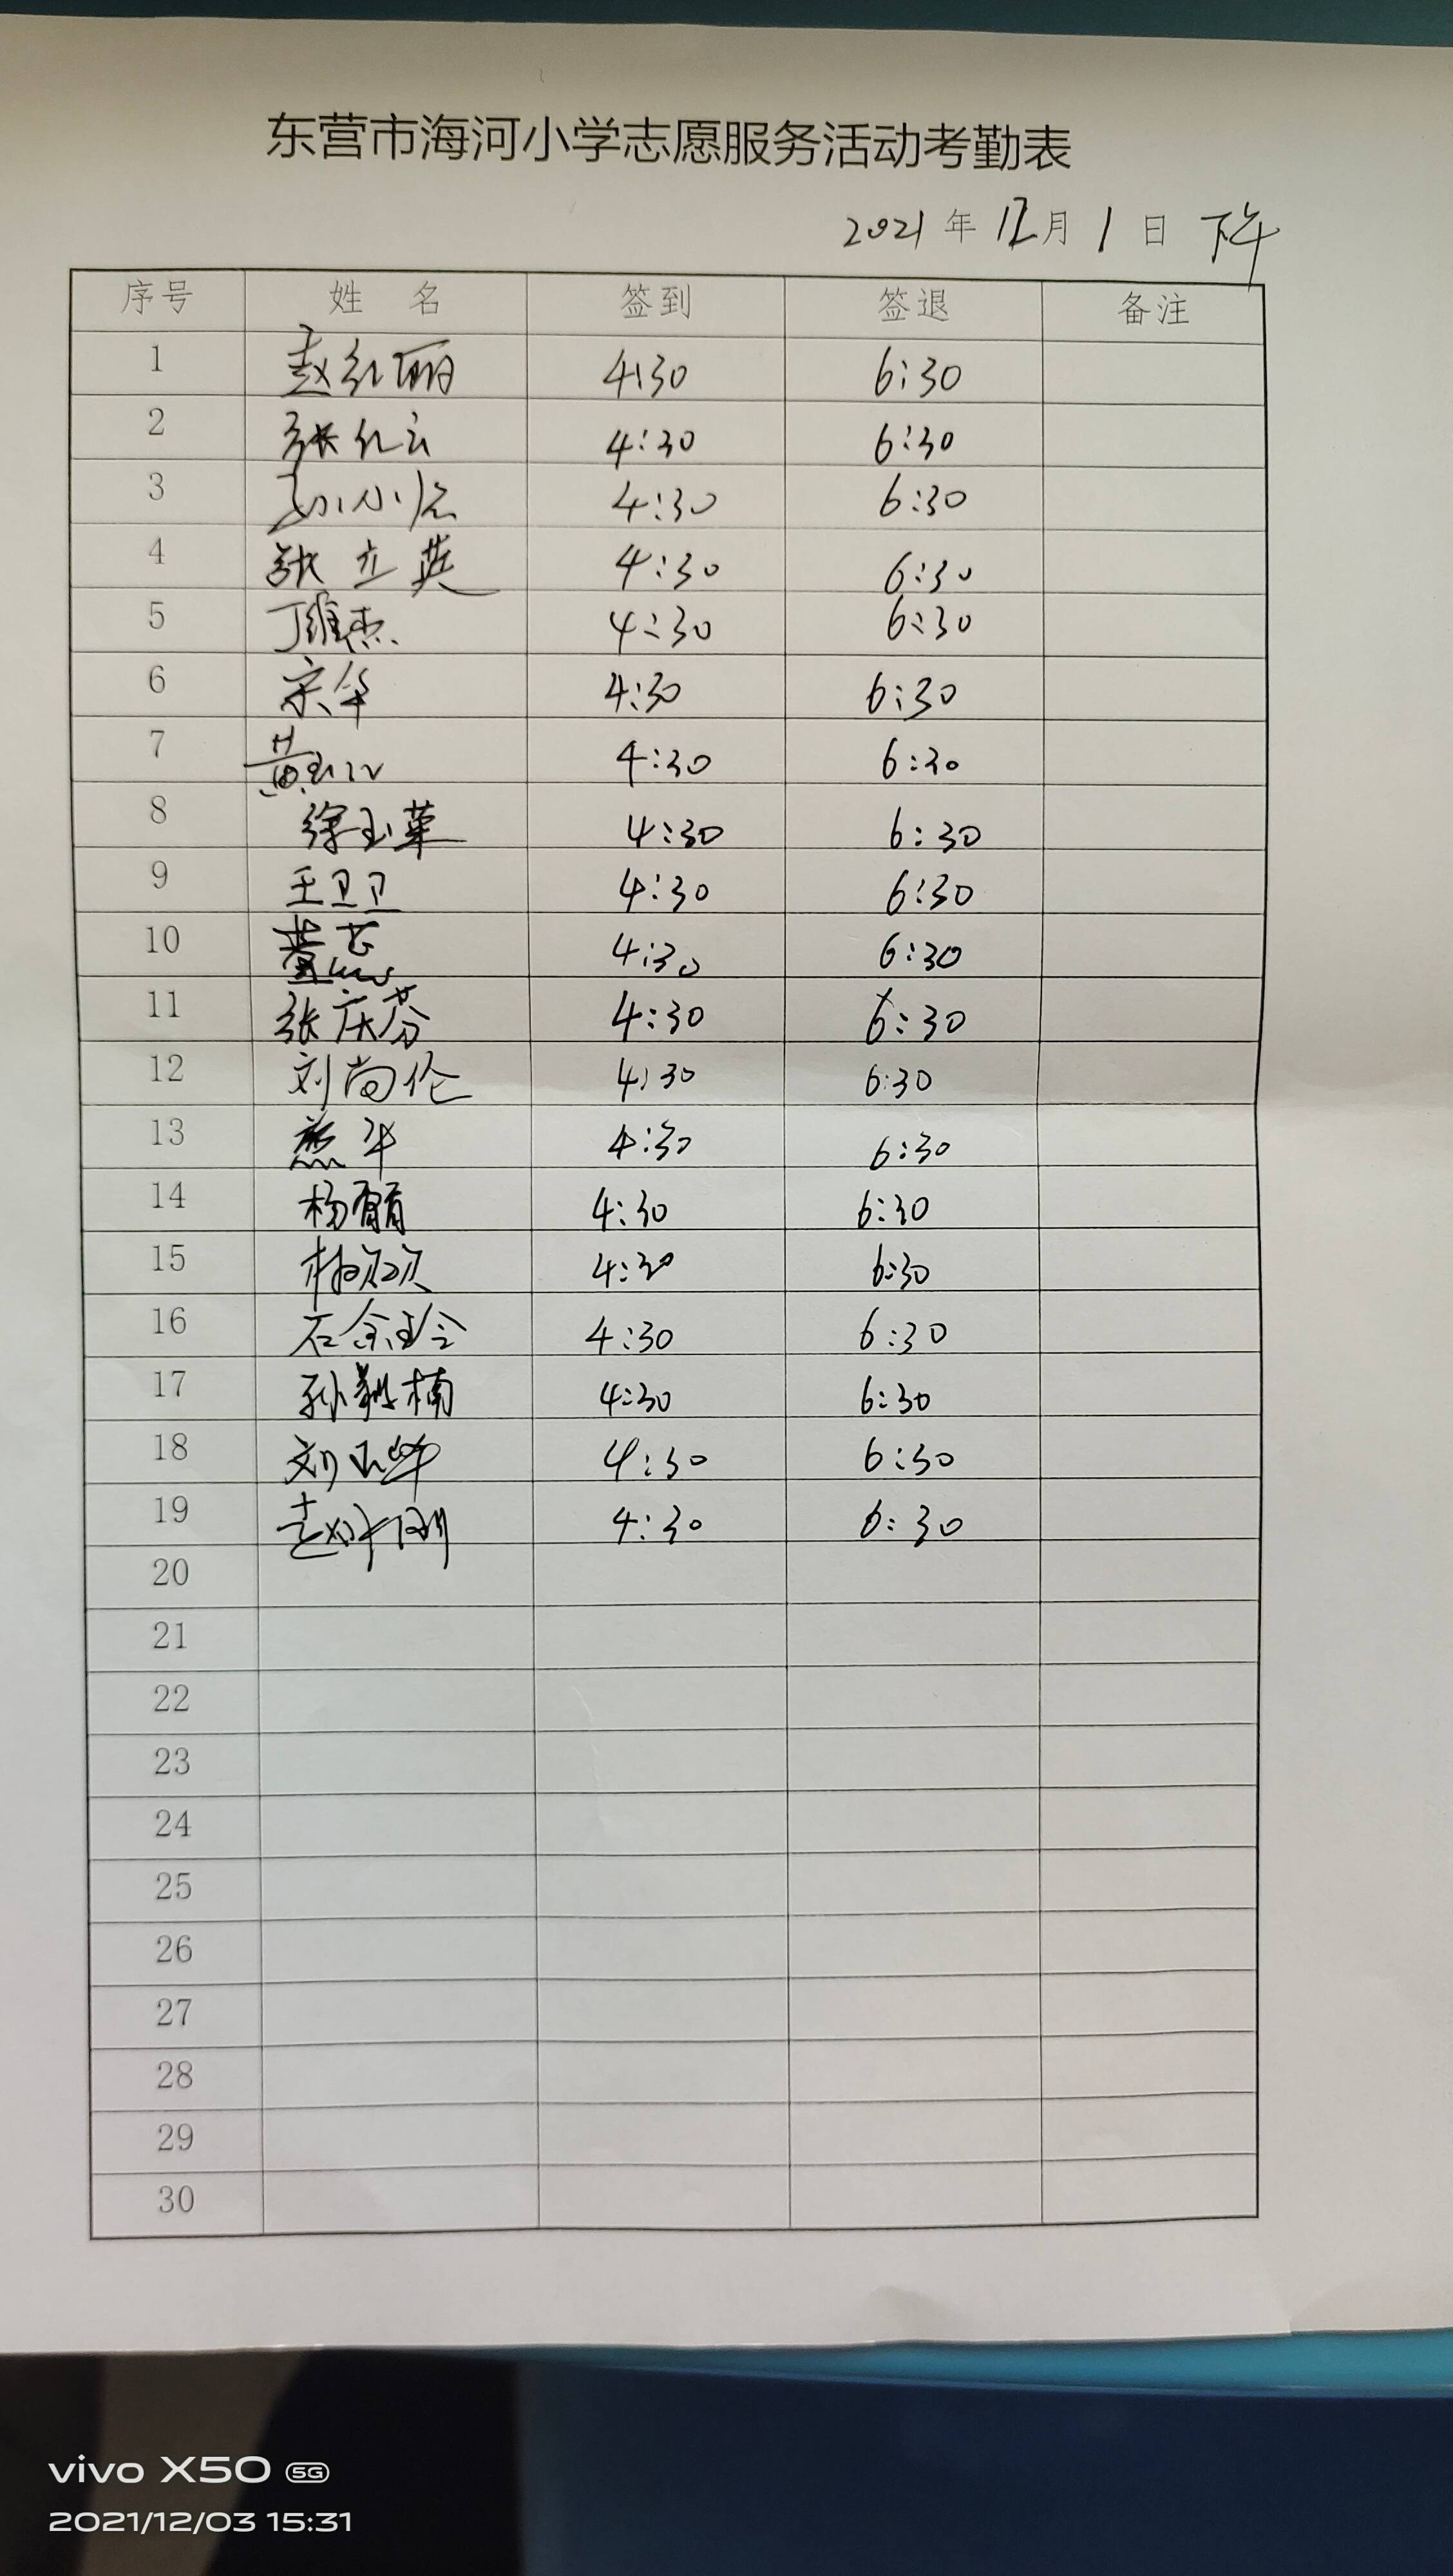 东营市海河小学志愿服务活动考勤表
2021年12月1日 下午
序号 姓 名 签到 签退 备注
1 赵红丽 4:30 6:30
2 张红云 4:30 6:30
3 4:30 6:30
4 张立英 4:30 6:30
5 丁维杰 4:30 6:30
6 宋华 4:30 6:30
7 黄 4:30 6:30
8 徐玉苹 4:30 6:30
9 王卫卫 4:30 6:30
10 董 4:30 6:30
11 张庆芬 4:30 6:30
12 刘尚伦 4:30 6:30
13 燕华 4:30 6:30
14 杨 4:30 6:30
15 4:30 6:30
16 石金玲 4:30 6:30
17 孙 楠 4:30 6:30
18 刘 4:30 6:30
19 赵 刚 4:30 6:30
20
21
22
23
24
25
26
27
28
29
30
vivo X50 5G
2021/12/03 15:31